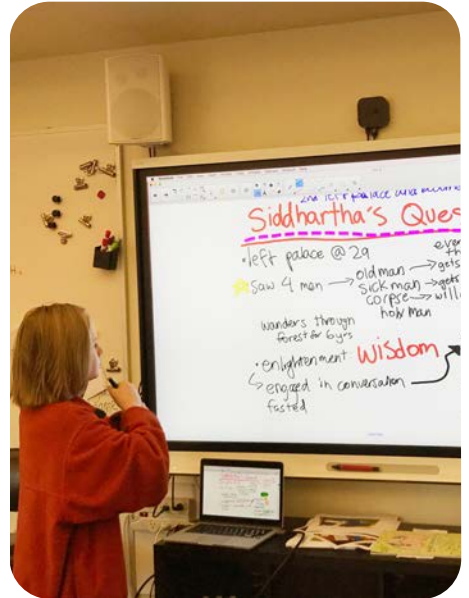 2nd left palace and
Siddhartha's Ques
• left palace @ 29
saw 4 men → old man → gets
sick man → gets
corpse → will
holy man
wanders through
forest for 6 yrs
• enlightenment WISDOM
↳ engaged in conversation
fasted